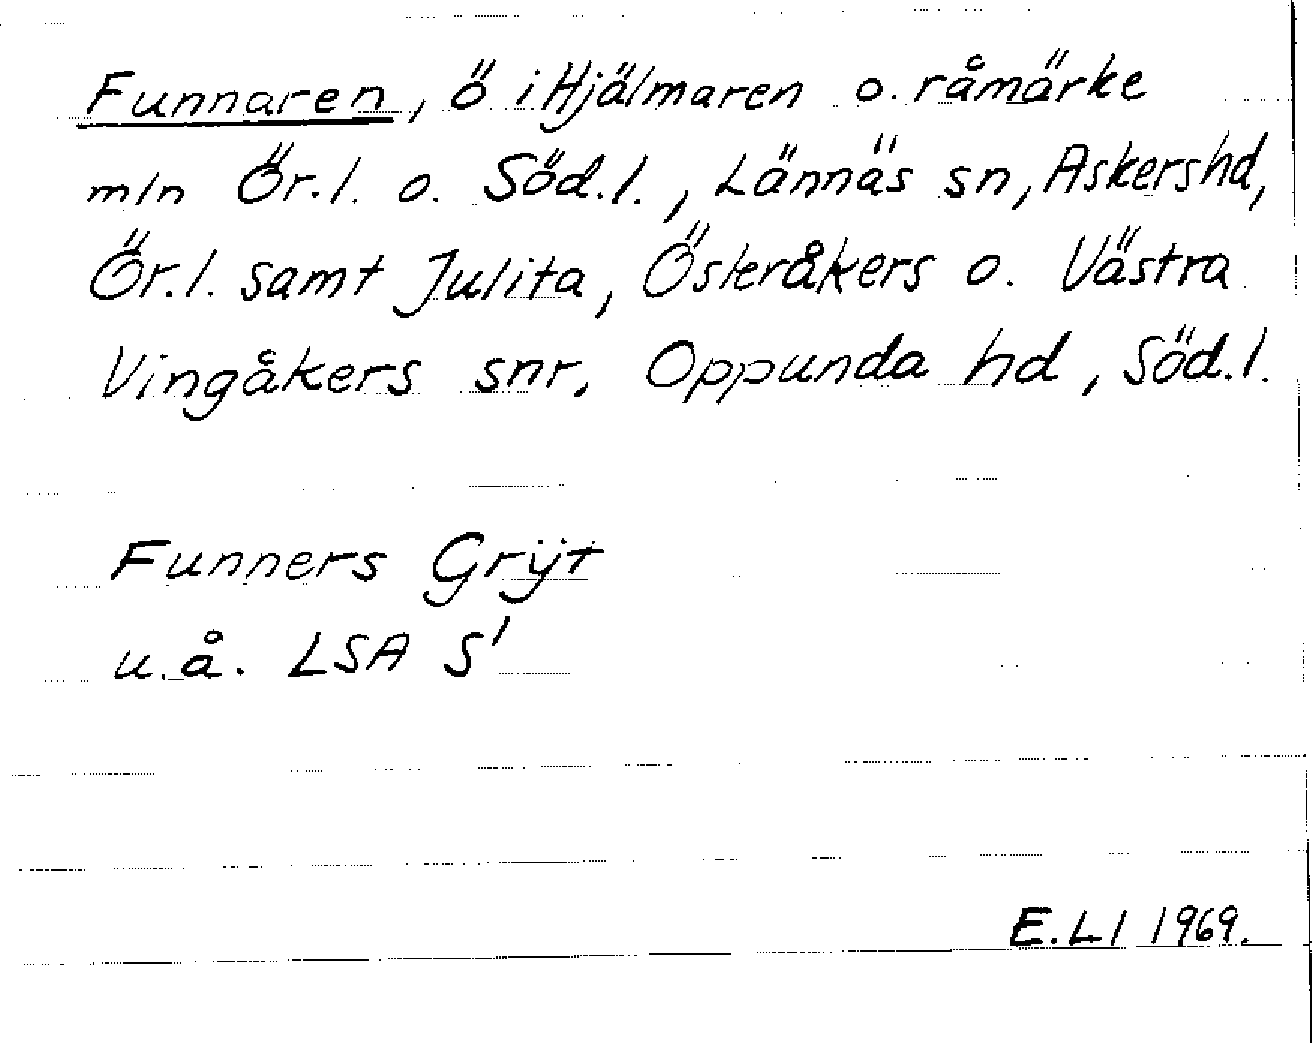 Funnaren, ö i Hjälmaren o. råmärke
mln Ör.l. o. Söd.l., Lännäs sn, Askers hd,
Ör.l. samt Julita, Österåkers o. Västra
Vingåkers snr, Oppunda hd, Söd.l.
Funners Grÿt
u.å. LSA S'
E.Ll 1969.